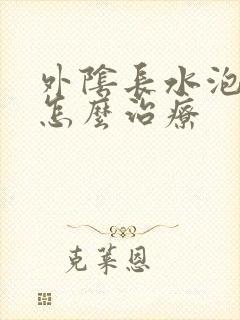 外陰長水泡
怎麼治療
克萊恩